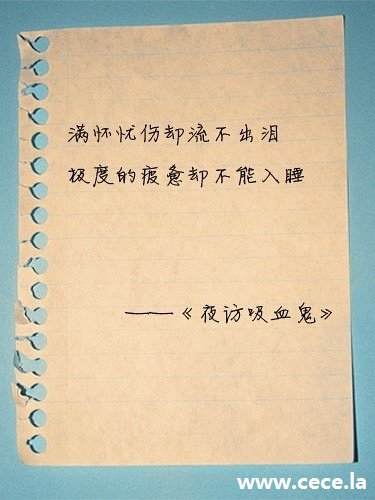 满怀忧伤却流不出泪
极度的疲惫却不能入睡
——《夜访吸血鬼》
www.cece.la